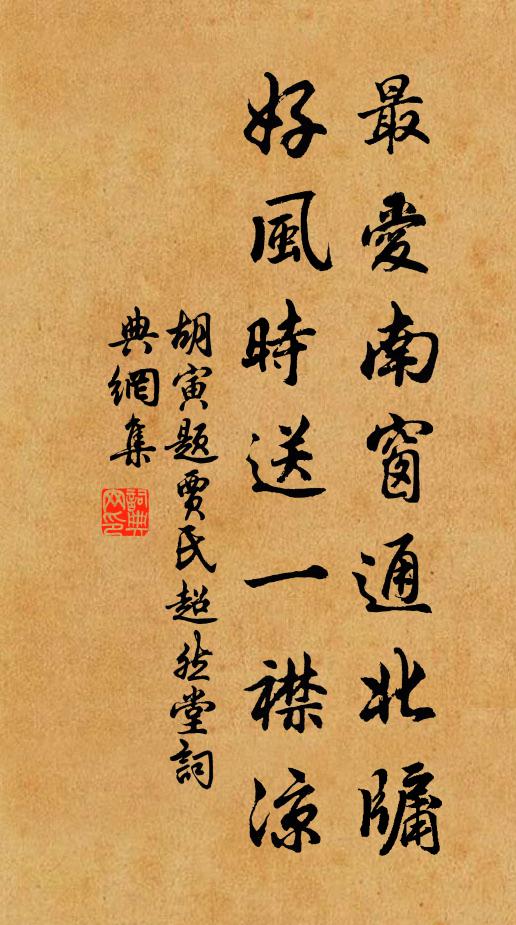 最愛南窗通北牖
好風時送一襟涼
胡寅題賈氏超然堂詞
典網集
詞典網印